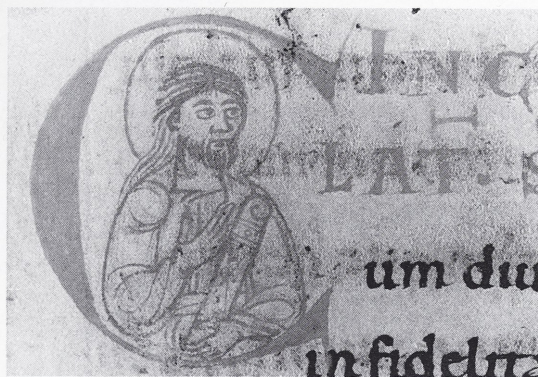 INC
LAT· S
Cum diu
infidelita